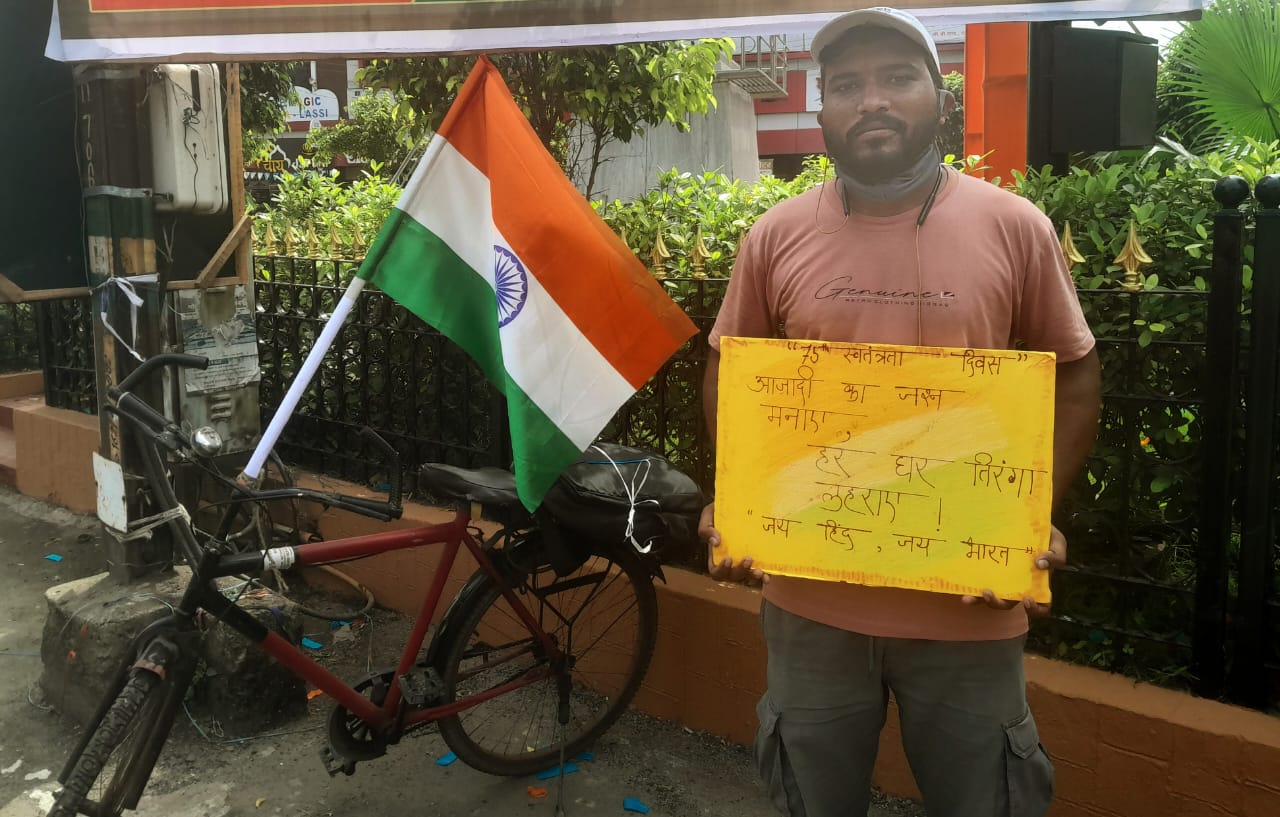 MAGIC
LASSI
Genuine
"75th स्वतंत्रता दिवस"
आज़ादी का जश्न
मनाए
हर घर तिरंगा
लहराए !
"जय हिंद , जय भारत"